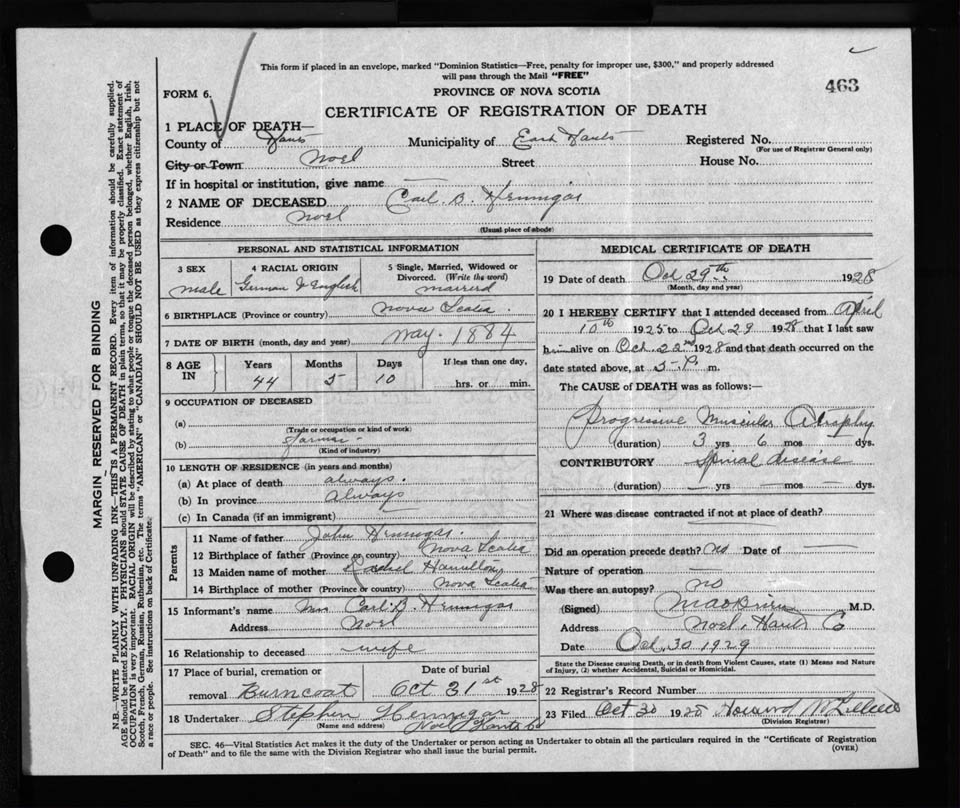 This form if placed in an envelope, marked "Dominion Statistics—Free, penalty for improper use, $300," and properly addressed
will pass through the Mail "FREE"
463
FORM 6.
PROVINCE OF NOVA SCOTIA
CERTIFICATE OF REGISTRATION OF DEATH
1 PLACE OF DEATH—
County of Hants Municipality of East Hants Registered No.
(For use of Registrar General only)
City or Town Noel Street House No.
If in hospital or institution, give name —
2 NAME OF DECEASED Carl. B. Hennigar
Residence Noel
(Usual place of abode)
PERSONAL AND STATISTICAL INFORMATION
3 SEX male
4 RACIAL ORIGIN German & English
5 Single, Married, Widowed or
Divorced. (Write the word)
married
6 BIRTHPLACE (Province or country) Nova Scotia
7 DATE OF BIRTH (month, day and year) May. 1884
8 AGE IN Years Months Days If less than one day,
44 5 10 hrs. or min.
9 OCCUPATION OF DECEASED
(a)
(Trade or occupation or kind of work)
(b) farmer
(Kind of industry)
10 LENGTH OF RESIDENCE (in years and months)
(a) At place of death always.
(b) In province always
(c) In Canada (if an immigrant)
Parents
11 Name of father John Hennigar.
12 Birthplace of father (Province or country) Nova Scotia
13 Maiden name of mother Hamilton
14 Birthplace of mother (Province or country) Nova Scotia
15 Informant's name Mrs Carl. B. Hennigar
Address Noel
16 Relationship to deceased wife
17 Place of burial, cremation or Date of burial
removal Burncoat Oct 31st 1928
18 Undertaker Stephen Hennigar
(Name and address) Noel Hants Co
MEDICAL CERTIFICATE OF DEATH
19 Date of death Oct 29th 1928
(Month, day and year)
20 I HEREBY CERTIFY that I attended deceased from April
10th 1925 to Oct 29 1928 that I last saw
him alive on Oct. 22nd 1928 and that death occurred on the
date stated above, at 5 P. m.
The CAUSE of DEATH was as follows:—
Progressive Muscular Atrophy
(duration) 3 yrs 6 mos — dys.
CONTRIBUTORY Spinal disease
(duration) — yrs — mos — dys.
21 Where was disease contracted if not at place of death?
—
Did an operation precede death? No Date of —
Nature of operation —
Was there an autopsy? no
(Signed) M.D.
Address Noel, Hants Co
Date Oct 30 1929
State the Disease causing Death, or in death from Violent Causes, state (1) Means and Nature
of Injury, (2) whether Accidental, Suicidal or Homicidal.
22 Registrar's Record Number
23 Filed Oct 30 1928 Howard
(Division Registrar)
SEC. 46—Vital Statistics Act makes it the duty of the Undertaker or person acting as Undertaker to obtain all the particulars required in the "Certificate of Registration
of Death" and to file the same with the Division Registrar who shall issue the burial permit.
(OVER)
MARGIN RESERVED FOR BINDING
N.B.—WRITE PLAINLY WITH UNFADING INK—THIS IS A PERMANENT RECORD. Every item of information should be carefully supplied.
AGE should be stated EXACTLY. PHYSICIANS should STATE CAUSE OF DEATH in plain terms, so that it may be properly classified. Exact statement of
OCCUPATION is very important. RACIAL ORIGIN will be described by stating to what people or tongue the deceased person belonged, whether English, Irish,
Scotch, French, German, Russian, Ruthenian, etc. The terms "AMERICAN" or "CANADIAN" SHOULD NOT BE USED as they express citizenship but not
a race or people. See instructions on back of Certificate.